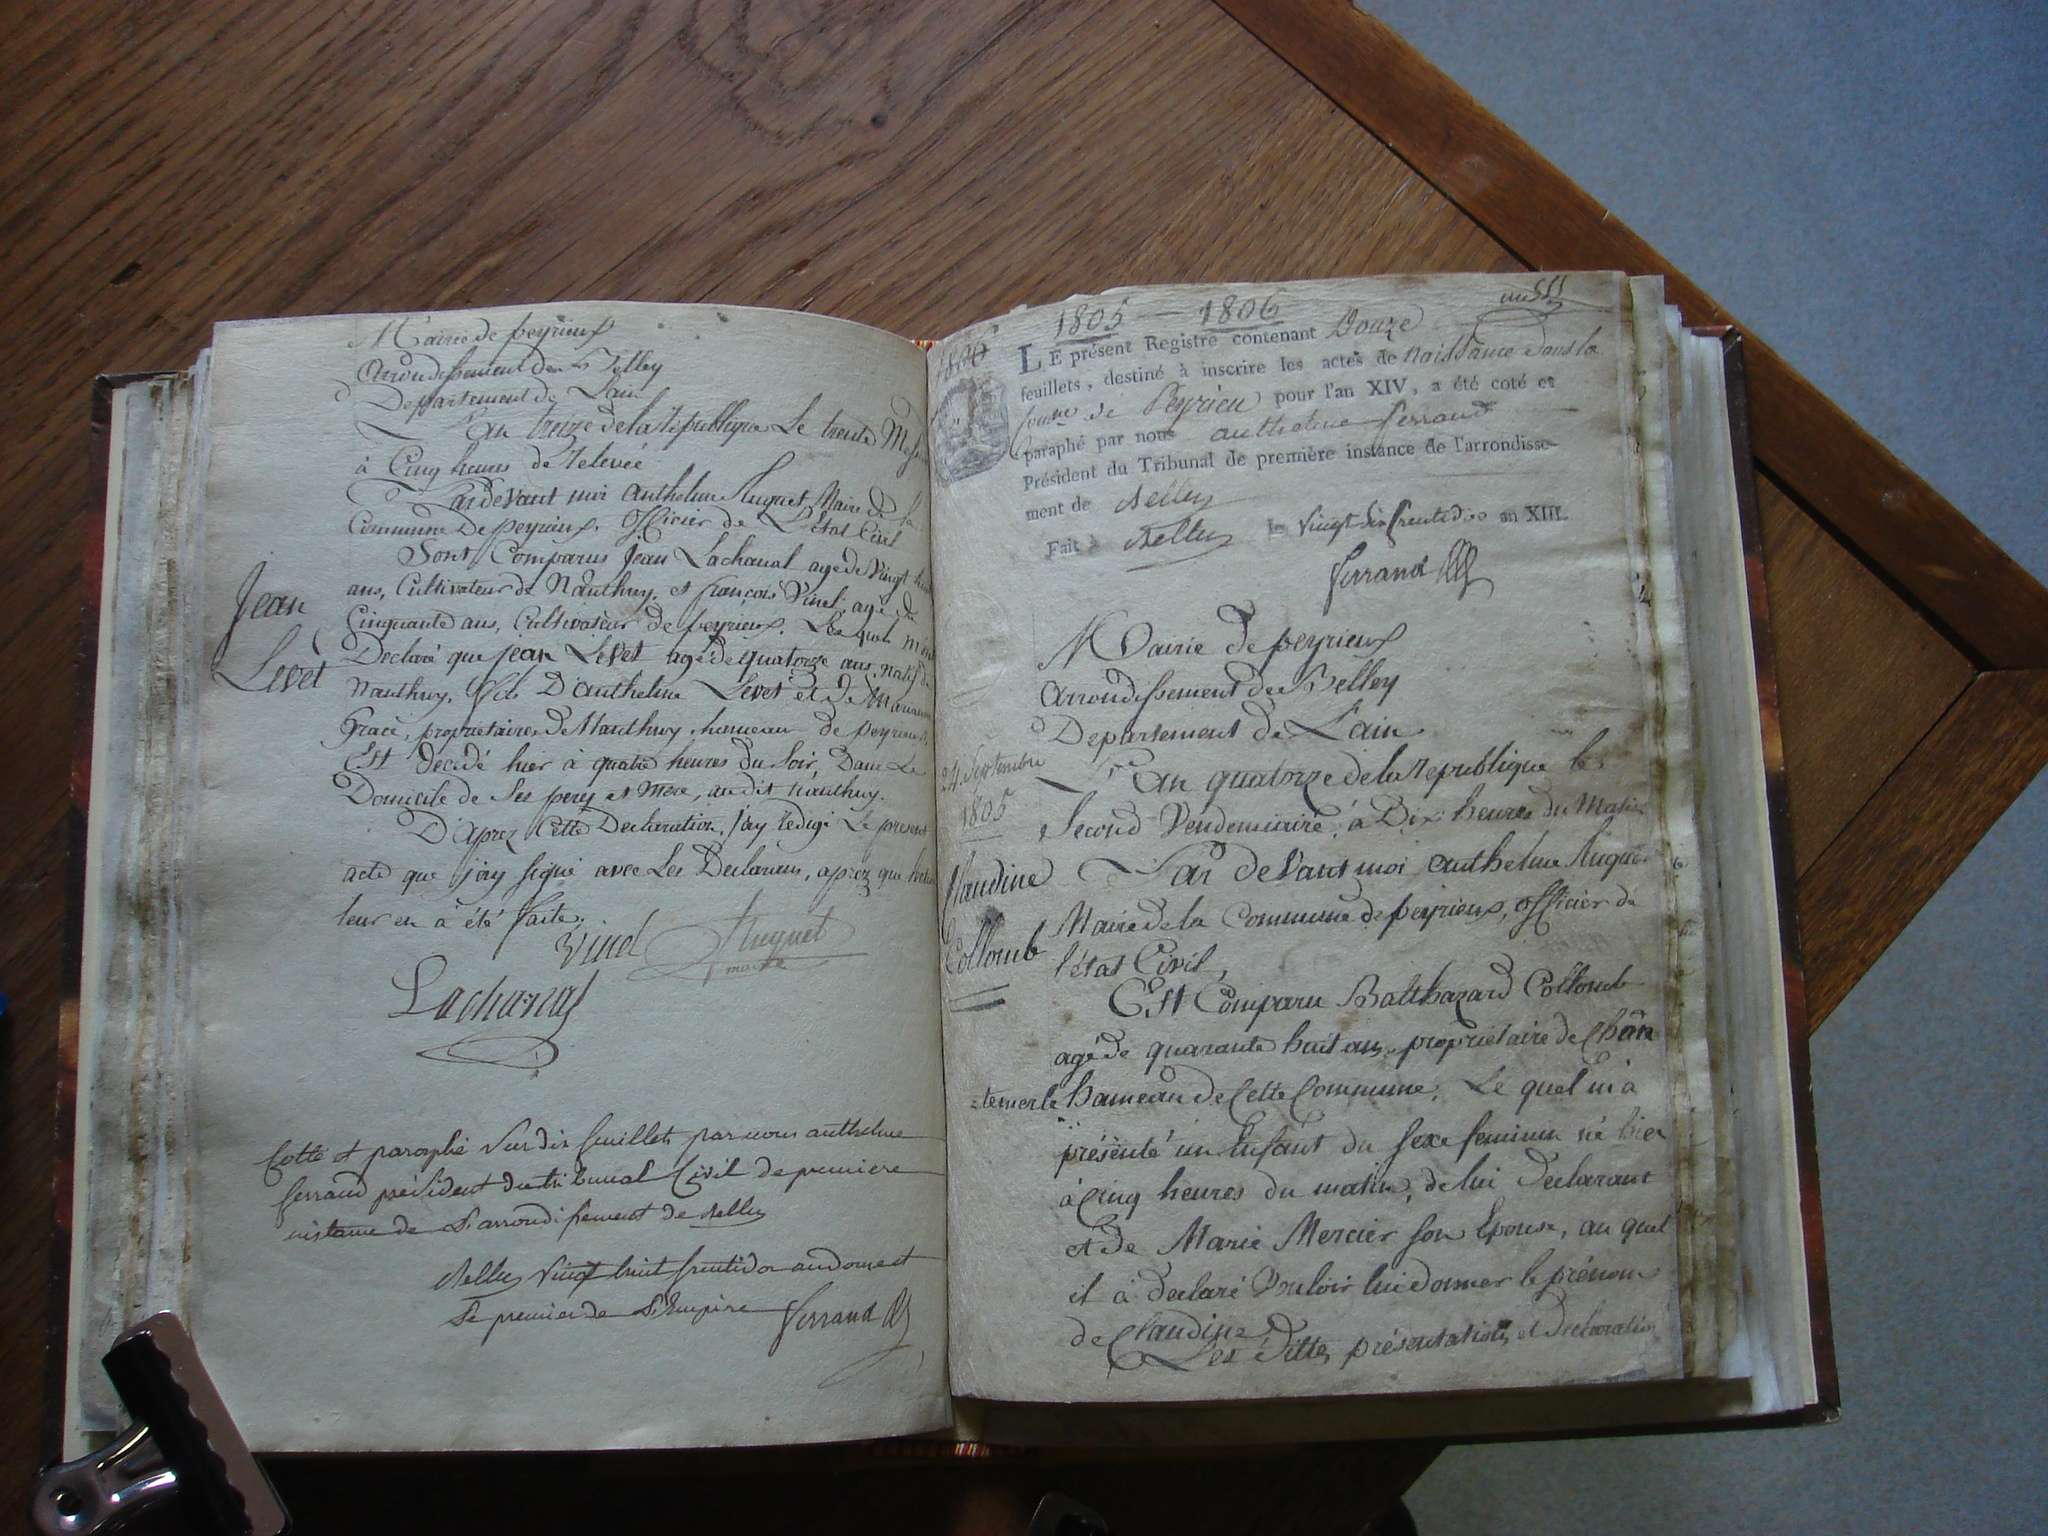 Mairie de peyrieux
Arrondissement de Belley
Departement de L'ain
L'an treize de la Republique Le trente
à Cinq heures de Relevée
Pardevant moi Anthelme Huguet, Maire de la
Commune De peyrieux, officier de L'état Civil
Sont Comparus Jean Lachanal agé de Vingt huit
ans, Cultivateur de Nanthuy, et françois Vinel, agé de
Cinquante ans, Cultivateur de peyrieux. Les quels m'ont
Declaré que jean Levet agé de quatorze ans, natif de
Nanthuy, fils D'anthelme Levet et de
Grace, proprietaires de Nanthuy, hameau de peyrieux,
Est Decedé hier à quatre heures du Soir, Dans Le
Domicile de Ses pere et Mere, au dit Nanthuy.
D'après Cette Declaration, j'ay redigé Le present
acte que j'ay signé avec Les Declarans, après que lecture
leur en à été faite.
Jean
Levet
Vinel Huguet
maire
Lachanal
Cotté et paraphé sur dix feuillets par nous anthelme
ferrand président du tribunal Civil de premiere
instance de L'arrondissement de Belley
Belley Vingt huit fructidor an douze et
Le premier de L'Empire ferrand
1805 — 1806
1806
LE présent Registre contenant Douze
feuillets, destiné à inscrire les actes de naissance dans la
Comne de Peyrieu pour l'an XIV, a été coté et
paraphé par nous anthelme ferrand
Président du Tribunal de première instance de l'arrondisse-
ment de Belley
Fait à Belley le Vingt six fructidor an XIII.
ferrand
Mairie de peyrieux
Arrondissement de Belley
Departement de L'ain
24 Septembre
1805
L'an quatorze de la Republique le
Second Vendemiaire, à Dix heures du Matin
Claudine
Collomb
Par devant moi Anthelme Huguet
Maire de la Commune de peyrieux, officier de
l'état Civil,
Est Comparu Balthazard Collomb
agé de quarante huit ans, propriétaire de Chan
=temerle hameau de Cette Commune. Le quel m'à
présenté un Enfant du sexe feminin né hier
à Cinq heures du matin, de lui Declarant
et de Marie Mercier son Epouse, au quel
il à declaré Vouloir lui donner le prénom
de Claudine
Les dittes présentation et Declaration